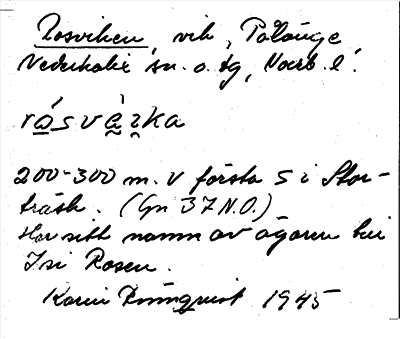 Rosviken, vik, Pålänge
Nederkalix sn. o. tg, Norrb. l.
rǻsvæ̀ʒka
200-300 m. V första s i Stor-
träsk. (Gn 37 N.O.)
Har sitt namn av ägaren
Isi Rosen.
Karin Rönnqvist 1945